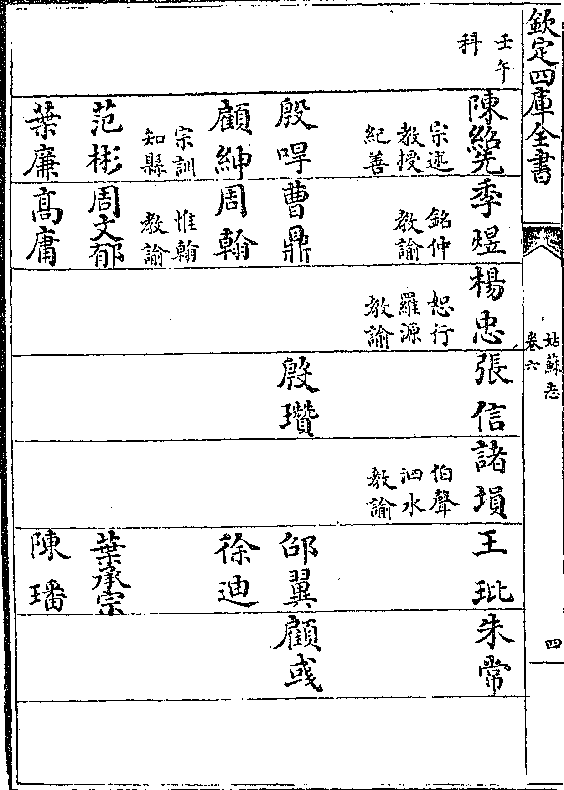 欽定四庫全書
姑蘇志
卷六
四
壬午
科
陳紹先
宗述
教授
紀善
季煜
銘仲
教諭
楊忠
恕行
羅源
教諭
張信
諸塤
伯聲
泗水
教諭
王玭
朱常
殷哻
曹鼎
殷瓚
邰翼
顧彧
顧紳
宗訓
知縣
周翰
惟翰
教諭
徐迪
范彬
周文郁
葉承宗
葉廉
髙庸
陳璠